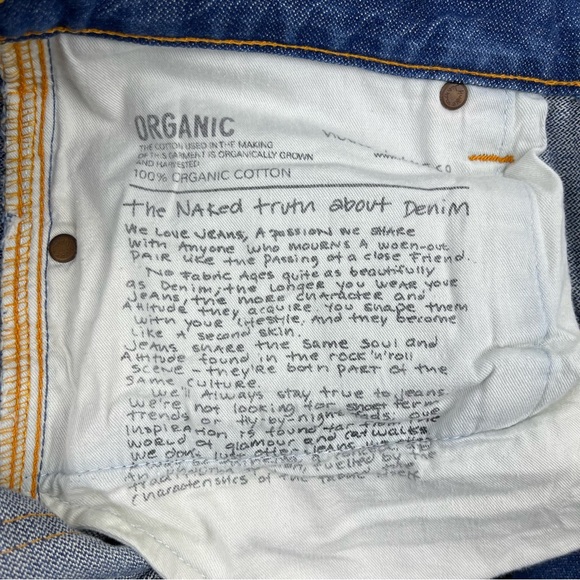 ORGANIC
THE COTTON USED IN THE MAKING
OF THIS GARMENT IS ORGANICALLY GROWN
AND HARVESTED
100% ORGANIC COTTON
The NAKed truth about Denim
We Love JeANS, A PASSION we SHARE
With Anyone who mourns A worn-out
PAIR Like the PASSING of a close Friend.
No FABRIC Ages quite as beautifully
as Denim, the Longer you WEAR your
JEANS, the more character and
Attitude they acquire. You shape them
with your Lifestyle. And they become
Like a second skin.
JEANS SHARE the SAME Soul and
Attitude found in the rock'n'roll
SCENE - they're both PART of the
same culture.
We'll Always stay true to jeans.
we're not Looking for short term
trends or
INSPIRATION is found far from the
WORLD of GLAMOUR and CATWALKS
We don't
fuelled by the
CHARACTERISTICS OF the